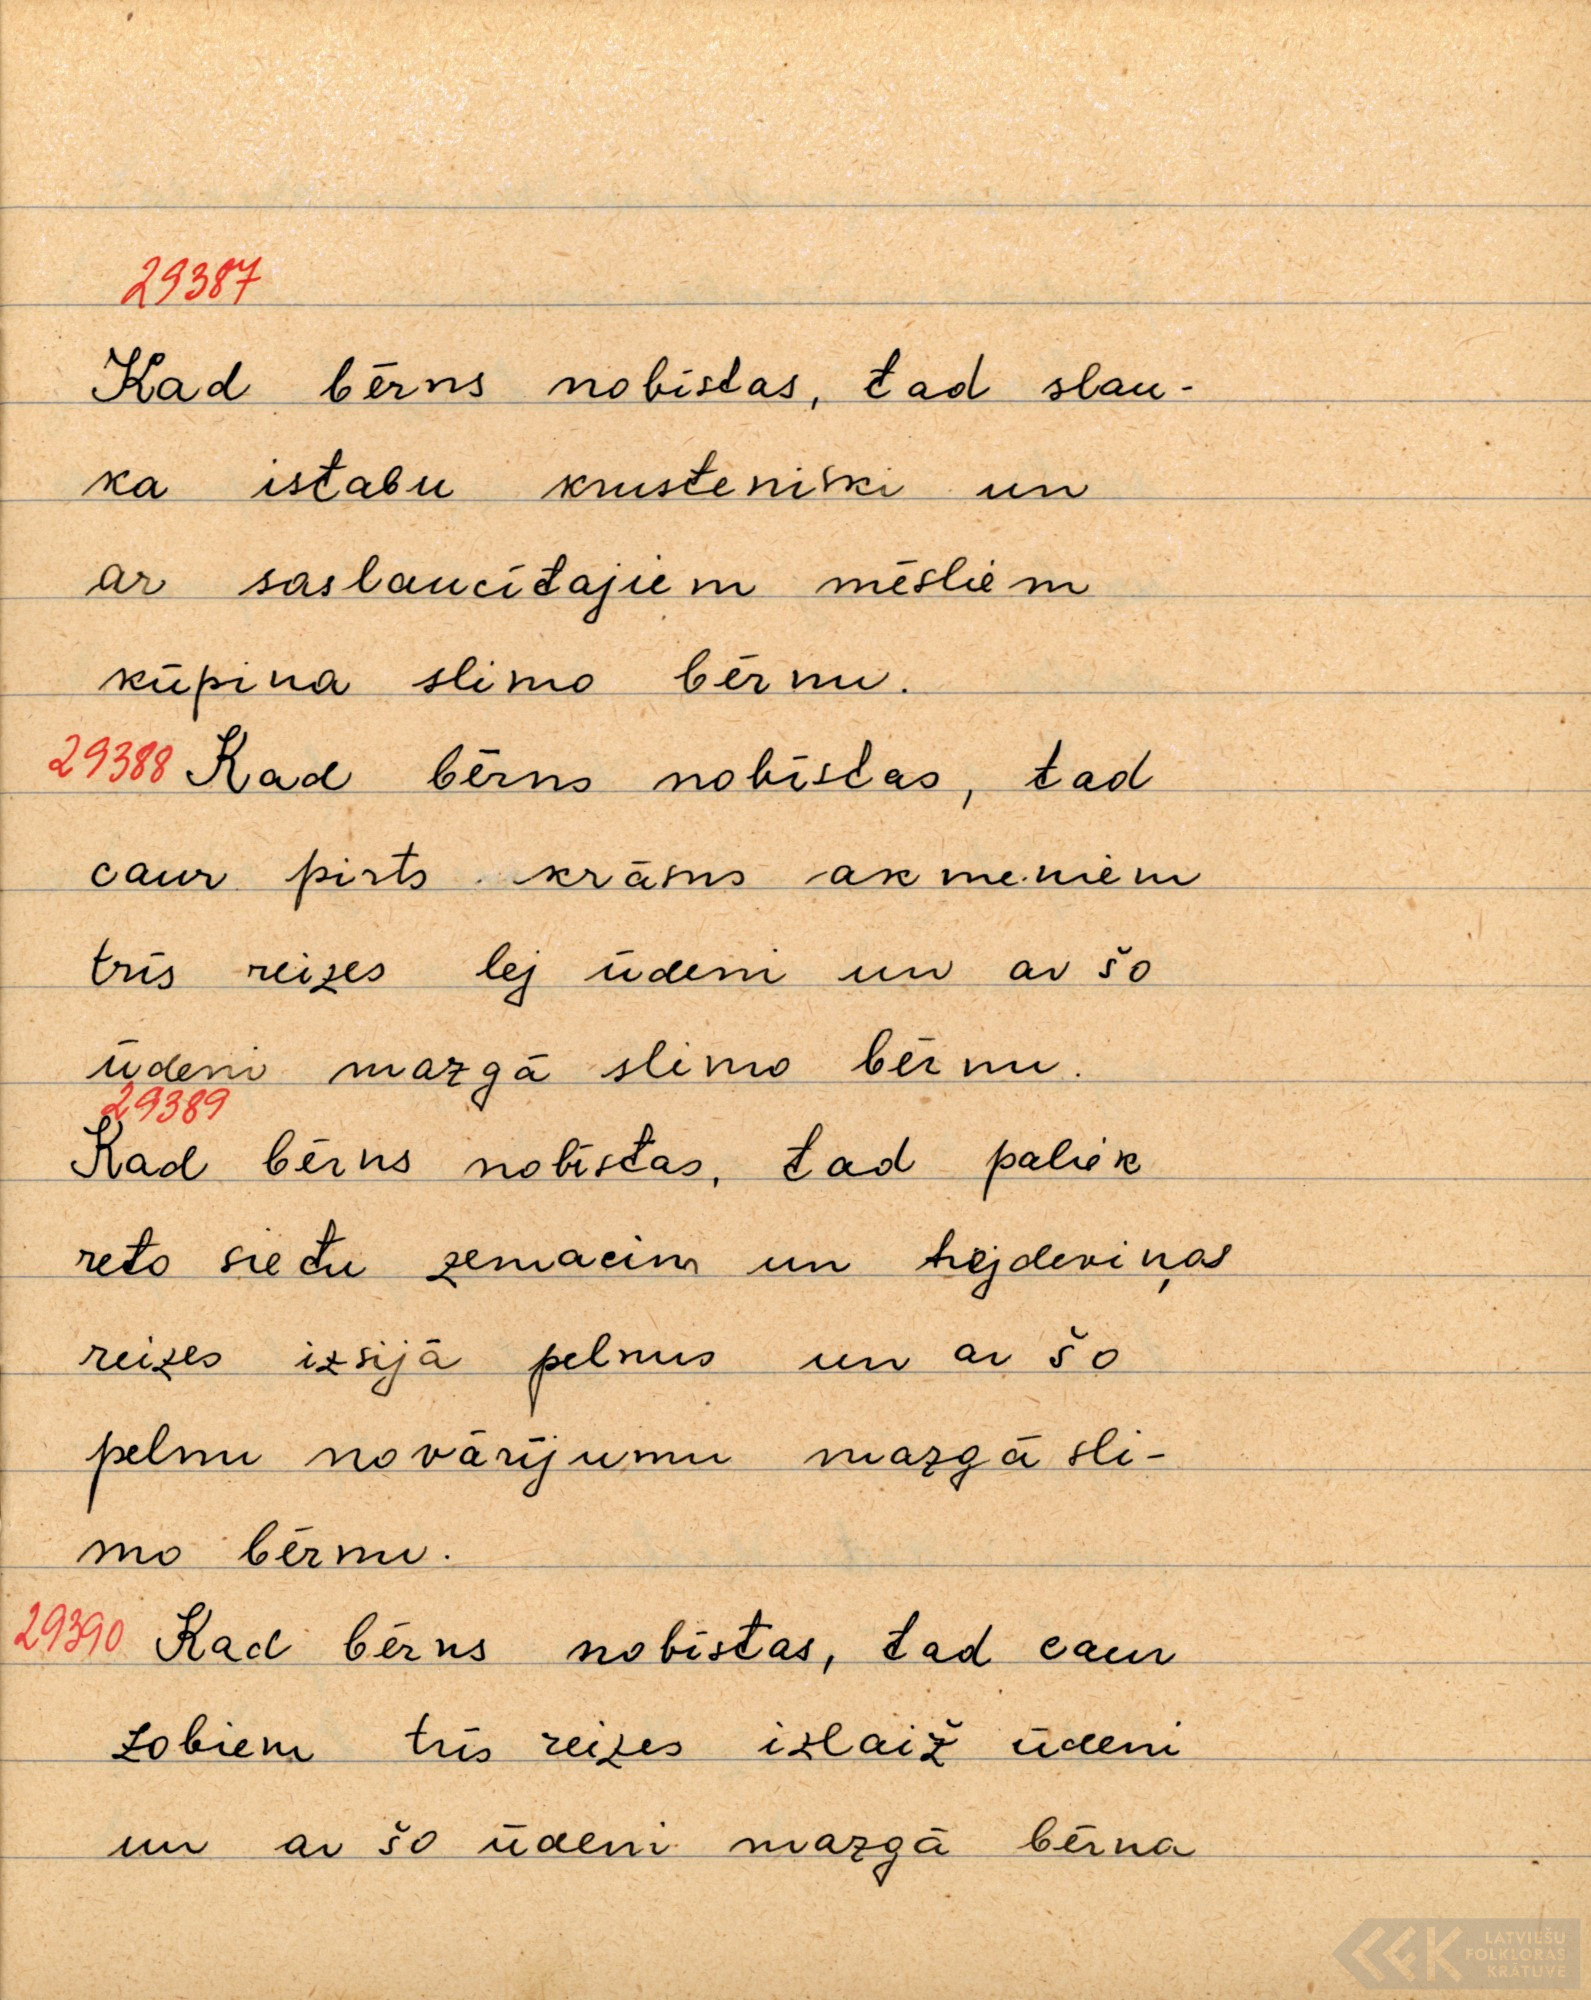 29387
Kad bērns nobīstas, tad slau-
ka istabu krusteniski un
ar saslaucītajiem mēsliem
kūpina slimo bērnu.
29388 Kad bērns nobīstas, tad
caur pirts krāsns akmeniem
trīs reizes lej ūdeni un ar šo
ūdeni mazgā slimo bērnu.
29389
Kad bērns nobīstas, tad paliek
reto sietu zemacim un trejdeviņas
reizes izsijā pelnus un ar šo
pelnu novārījumu mazgā sli-
mo bērnu.
29390 Kad bērns nobīstas, tad caur
zobiem trīs reizes izlaiž ūdeni
un ar šo ūdeni mazgā bērna
LATVIEŠU
FOLKLORAS
KRĀTUVE